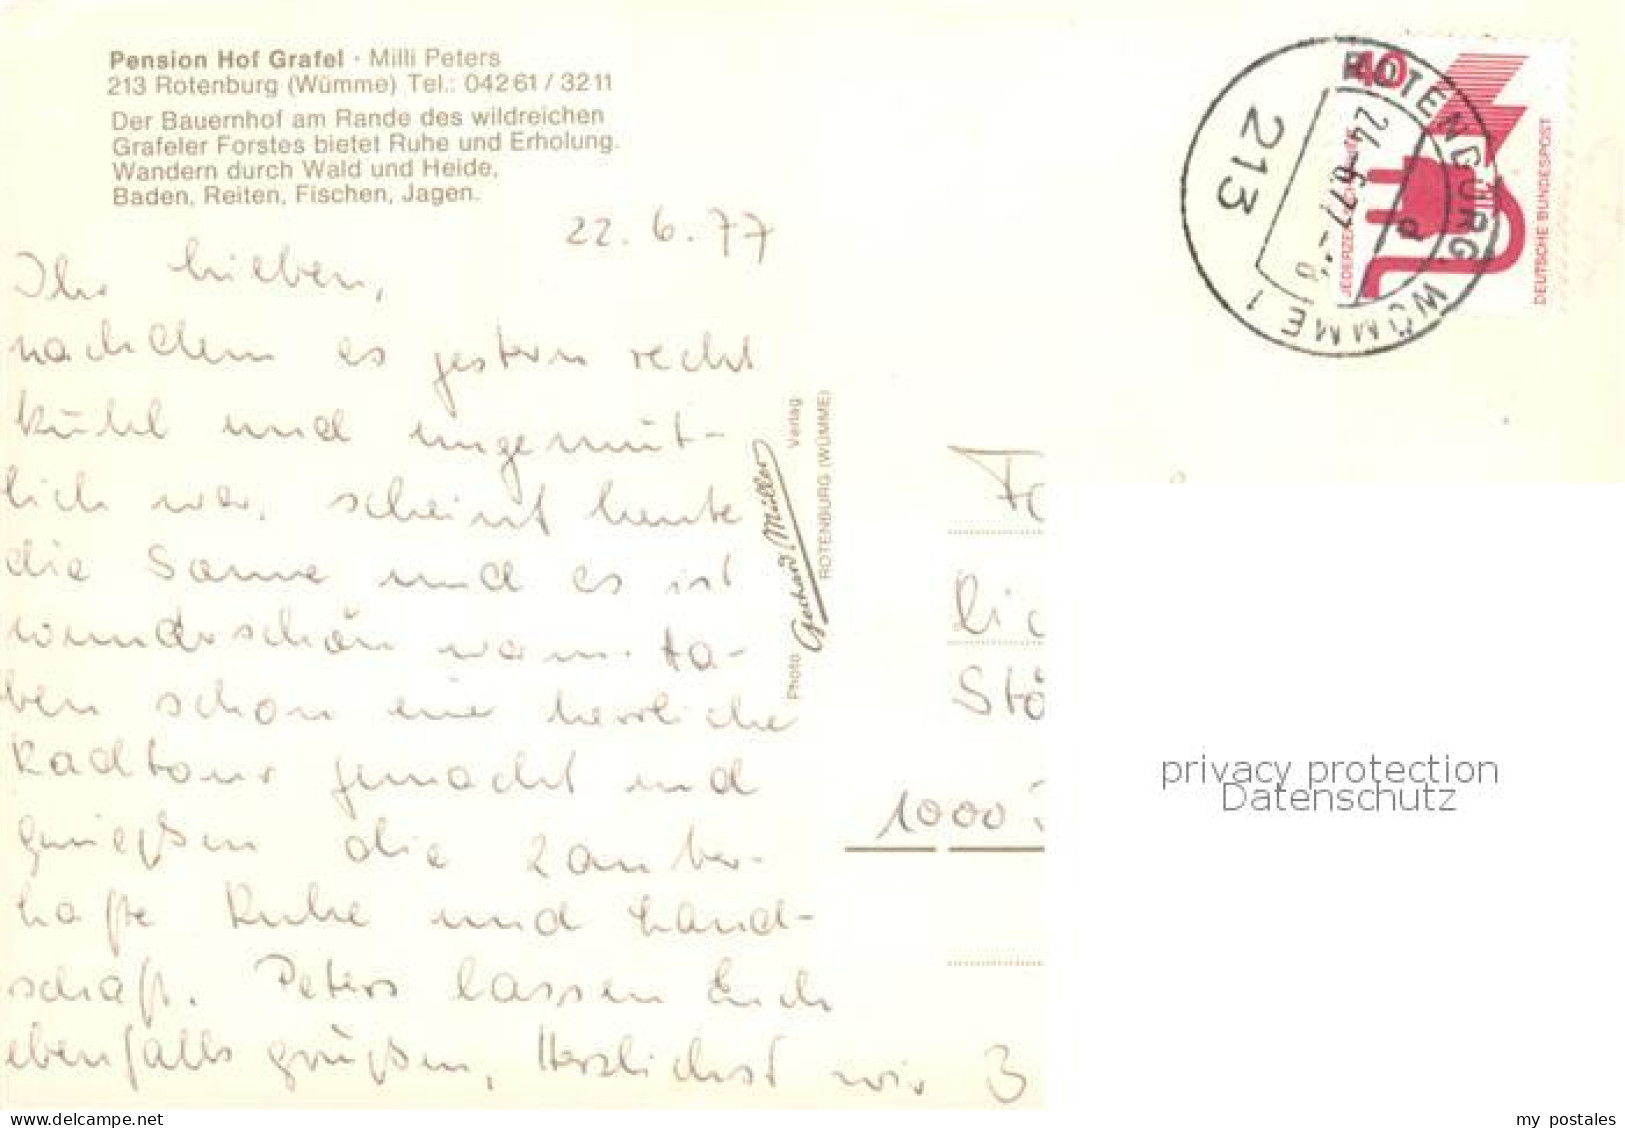 Pension Hof Grafel · Milli Peters
213 Rotenburg (Wümme) Tel.: 042 61 / 32 11
Der Bauernhof am Rande des wildreichen
Grafeler Forstes bietet Ruhe und Erholung.
Wandern durch Wald und Heide,
Baden, Reiten, Fischen, Jagen.
22.6.77
Ihr Lieben,
nachdem es gestern recht
kühl und ungemüt-
lich war, scheint heute
die Sonne und es ist
wunderschön warm. Ha-
ben schon eine herrliche
Radtour gemacht und
genießen die zauber-
hafte Ruhe und Land-
schaft. Peters lassen Euch
ebenfalls grüßen, Herzlichst wir 3
Photo Gerhard Müller Verlag
ROTENBURG (WÜMME)
40
JEDERZEIT
DEUTSCHE BUNDESPOST
ROTENBURG, WÜMME 1
24.-6.77
d
213
Stö
1000
privacy protection
Datenschutz
delcampe.net
my_postales